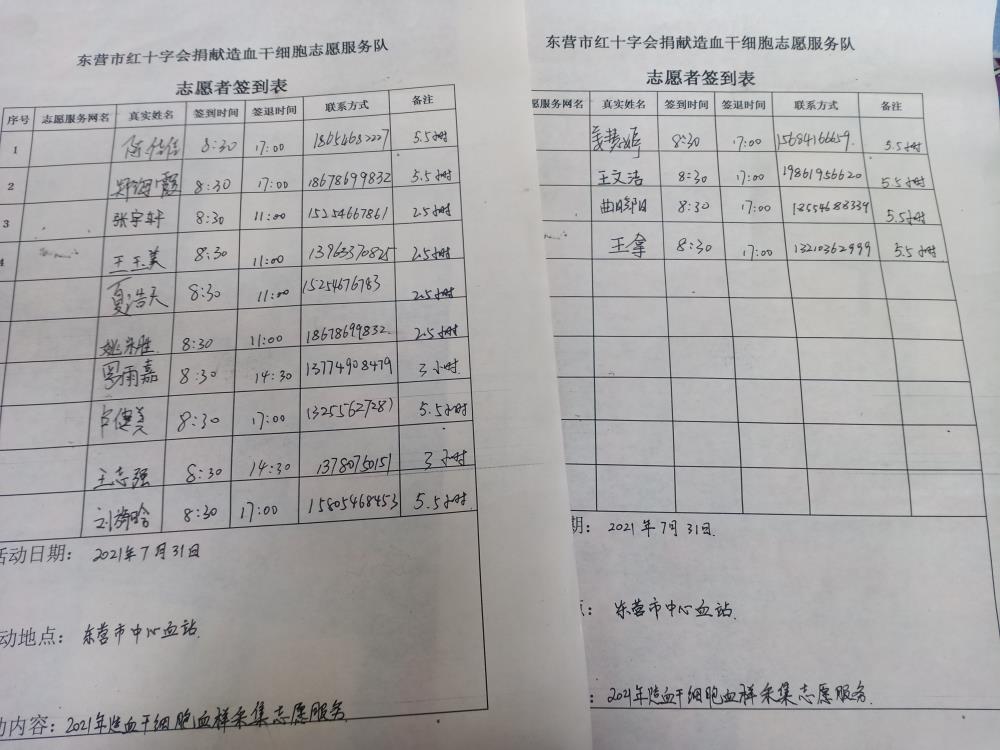 东营市红十字会捐献造血干细胞志愿服务队
志愿者签到表
序号 志愿服务网名 真实姓名 签到时间 签退时间 联系方式 备注
1 陈倩倩 8:30 17:00 18654682227 5.5小时
2 郑海霞 8:30 17:00 18678699832 5.5小时
3 张宇轩 8:30 11:00 15254667861 2.5小时
4 王玉美 8:30 11:00 13963370825 2.5小时
夏浩天 8:30 11:00 15254676783 2.5小时
姚 8:30 11:00 18678699832 2.5小时
雨嘉 8:30 14:30 13774908479 3小时
健美 8:30 17:00 13255627287 5.5小时
王志强 8:30 14:30 13780750151 3小时
刘 8:30 17:00 15805468453 5.5小时
活动日期: 2021年7月31日
动地点: 东营市中心血站.
动内容: 2021年造血干细胞血样采集志愿服务
东营市红十字会捐献造血干细胞志愿服务队
志愿者签到表
愿服务网名 真实姓名 签到时间 签退时间 联系方式 备注
姜梦婷 8:30 17:00 15684166659. 5.5小时
王文洁 8:30 17:00 19861956620 5.5小时
曲 8:30 17:00 18554688339 5.5小时
王拿 8:30 17:00 13210362999 5.5小时
期: 2021年7月31日.
点: 东营市中心血站.
: 2021年造血干细胞血样采集志愿服务.